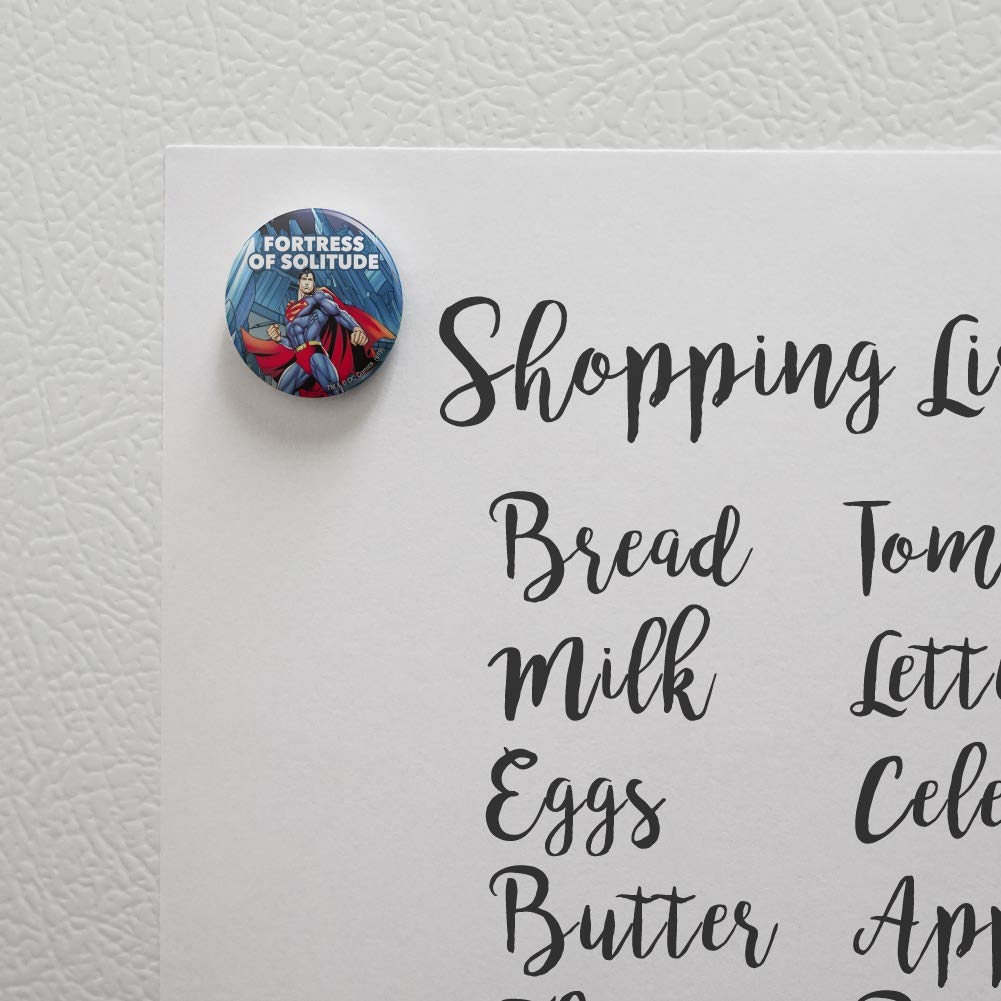 FORTRESS
OF SOLITUDE
TM & © DC Comics
Shopping Li
Bread Tom
Milk Lett
Eggs Cele
Butter App